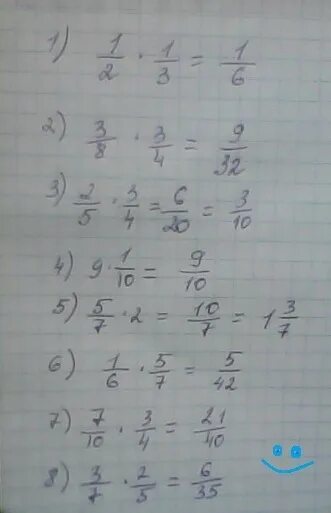 1) 1/2 · 1/3 = 1/6
2) 3/8 · 3/4 = 9/32
3) 2/5 · 3/4 = 6/20 = 3/10
4) 9 · 1/10 = 9/10
5) 5/7 · 2 = 10/7 = 1 3/7
6) 1/6 · 5/7 = 5/42
7) 7/10 · 3/4 = 21/40
8) 3/7 · 2/5 = 6/35